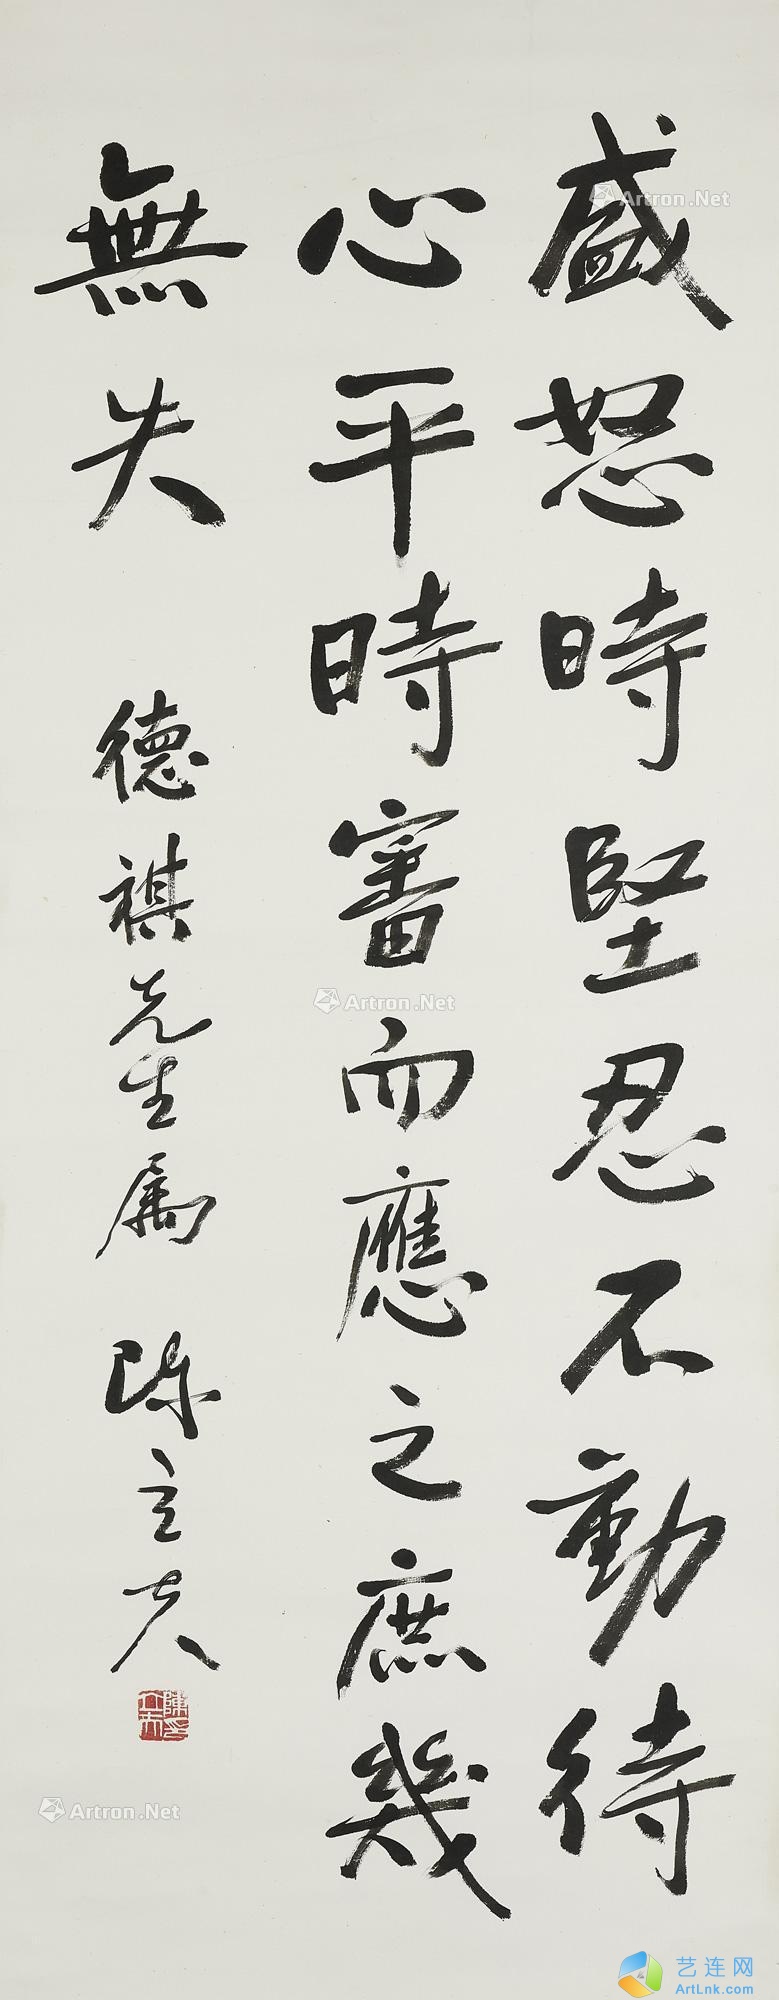 盛怒時堅忍不動待
心平時審而應之庶幾
無失
德祺先生属 陳立夫
陳立夫印
Artron.Net
Artron.Net
Artron.Net
艺连网
ArtLnk.com